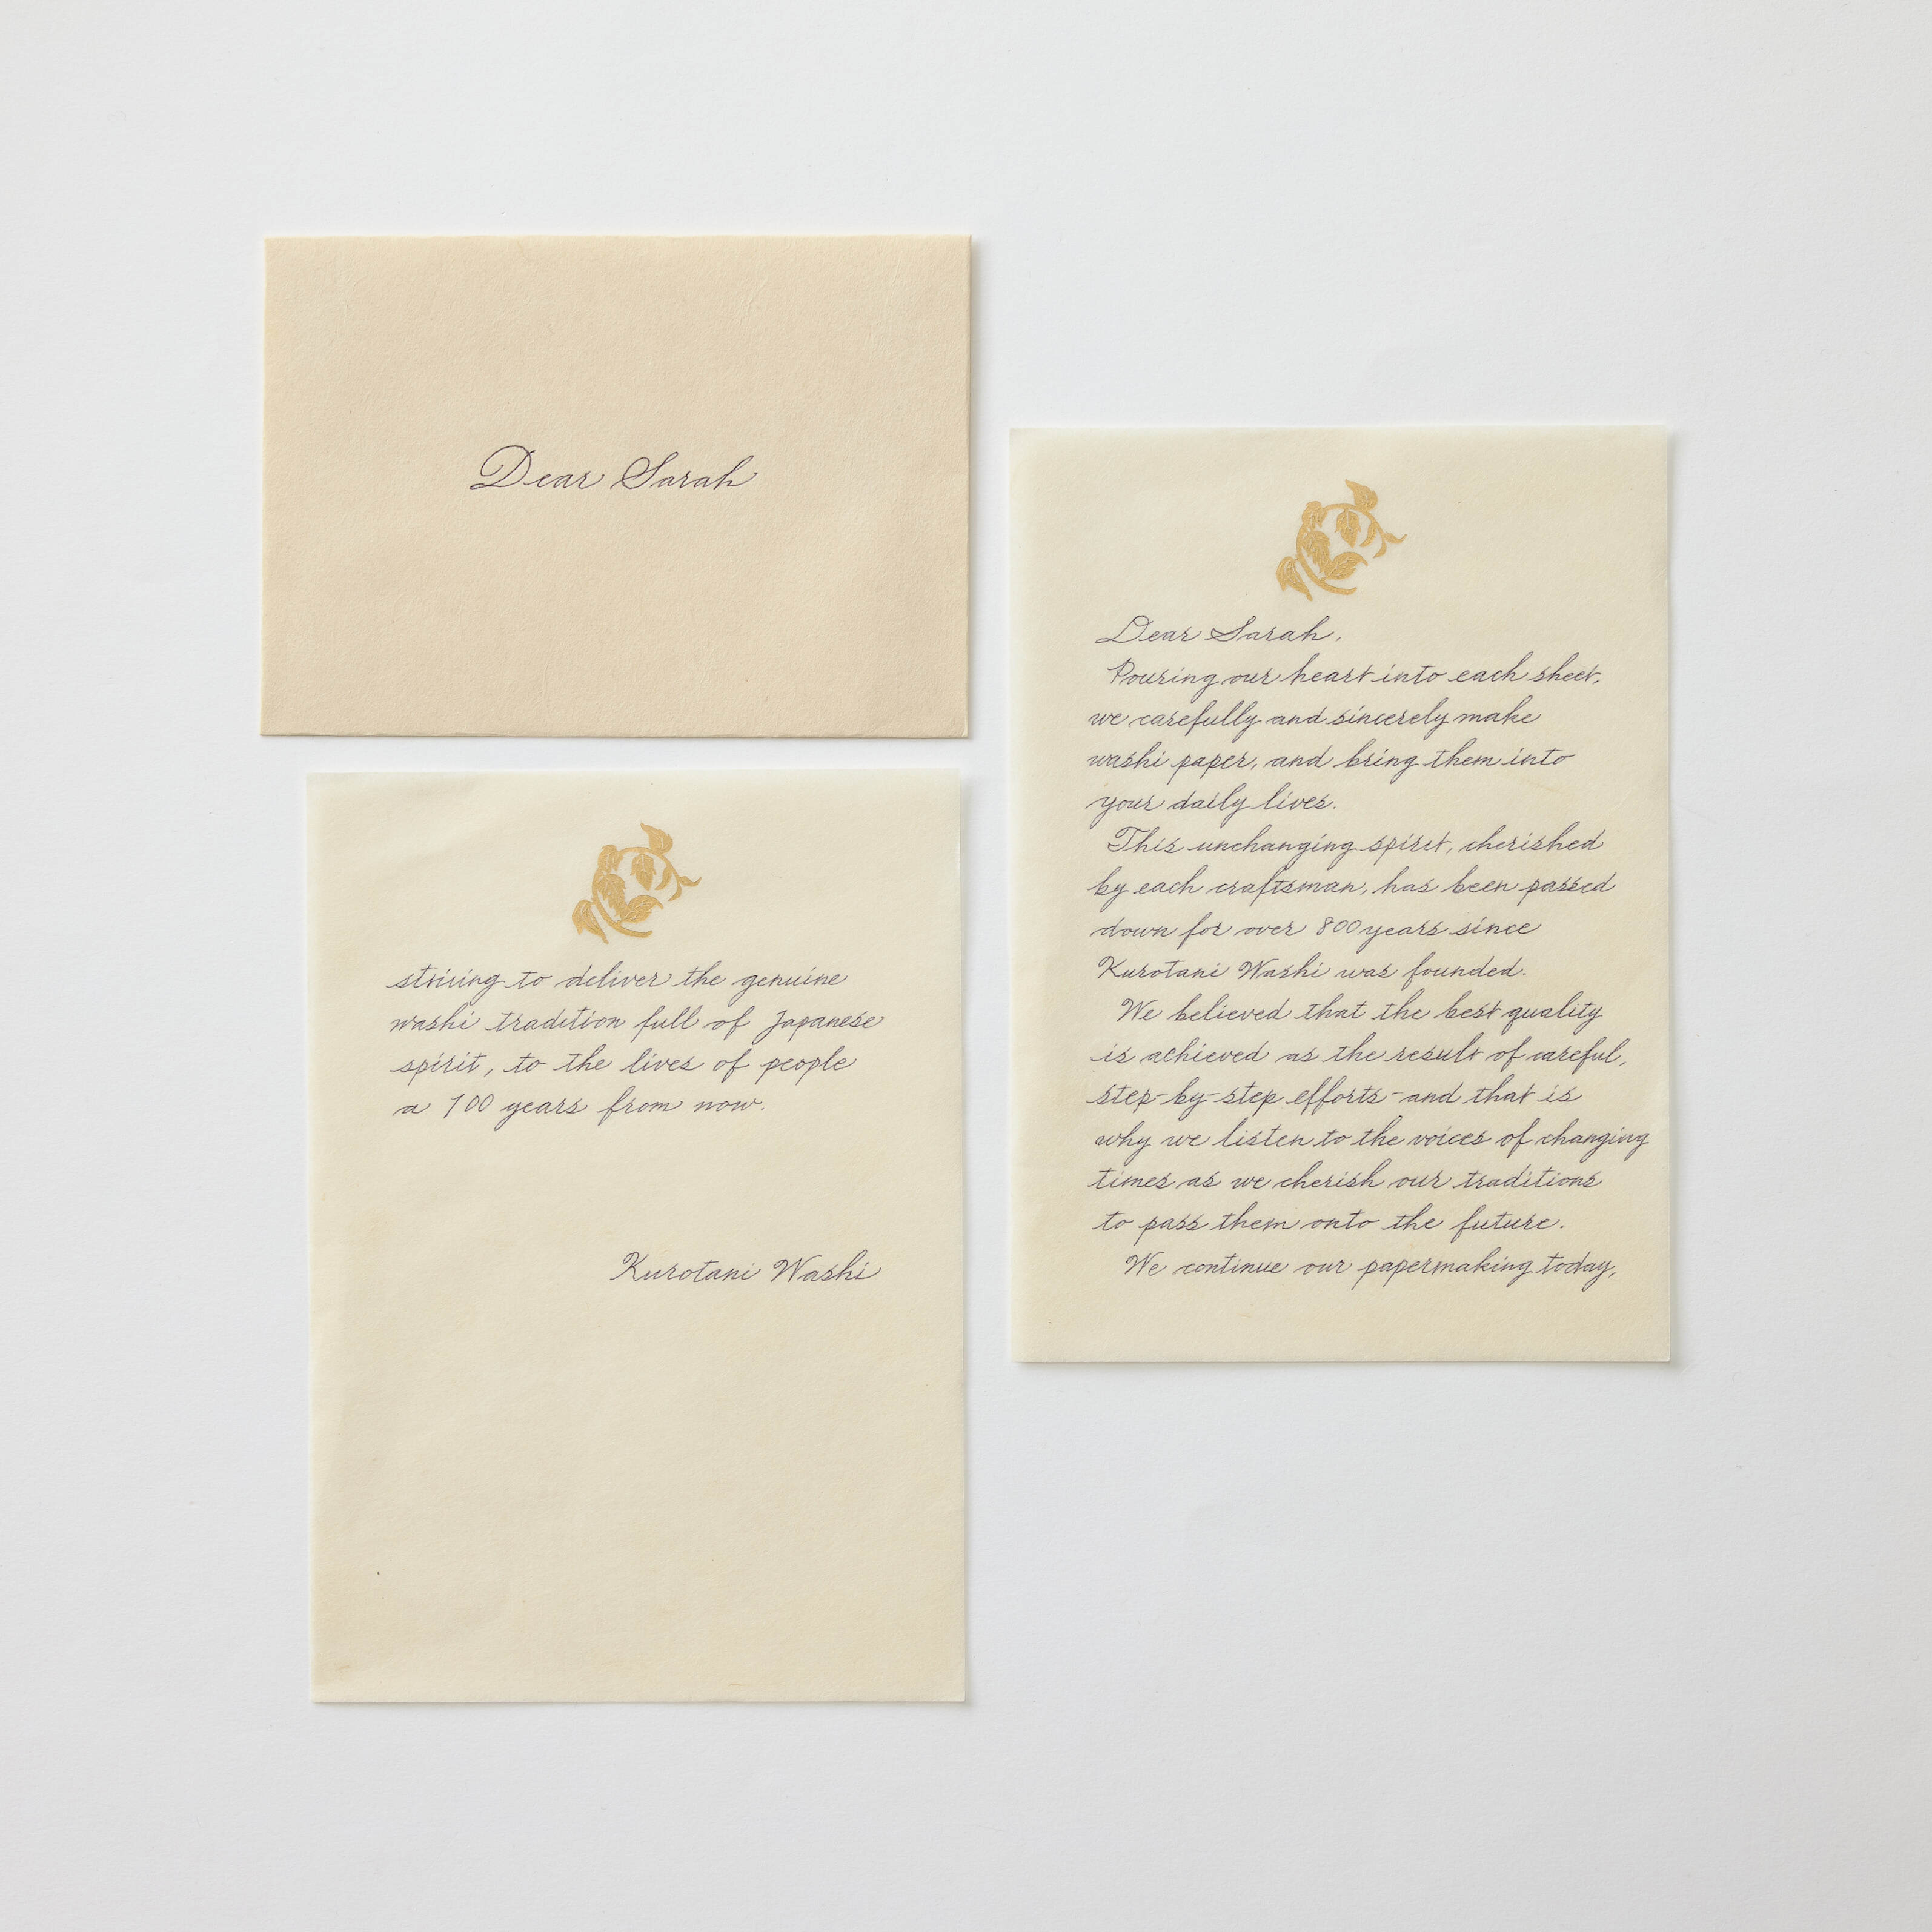 Dear Sarah
Dear Sarah,
Pouring our heart into each sheet,
we carefully and sincerely make
washi paper, and bring them into
your daily lives.
This unchanging spirit, cherished
by each craftsman, has been passed
down for over 800 years since
Kurotani Washi was founded.
We believed that the best quality
is achieved as the result of careful,
step-by-step efforts - and that is
why we listen to the voices of changing
times as we cherish our traditions
to pass them onto the future.
We continue our papermaking today,
striving to deliver the genuine
washi tradition full of Japanese
spirit, to the lives of people
a 100 years from now.
Kurotani Washi